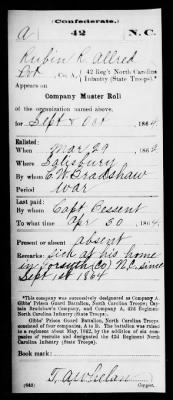 (Confederate.)
A 42 N.C.
Rubin R. Allred
Pvt, Co. A, 42 Reg't North Carolina
Infantry (State Troops).*
Appears on
Company Muster Roll
of the organization named above,
for Sept & Oct, 1864.
Enlisted:
When Mar 29, 1862.
Where Salisbury
By whom E.W. Bradshaw
Period war
Last paid:
By whom Capt. Bessent
To what time Apr 30, 1864.
Present or absent absent
Remarks: Sick at his home
in Forsyth Co N.C. since
Sept 1st 1864
*This company was successively designated as Company A,
Gibbs' Prison Guard Battalion, North Carolina Troops;
Captain Bradshaw's Company, and Company A, 42d Regiment
North Carolina Infantry (State Troops).
Gibbs' Prison Guard Battalion, North Carolina Troops,
consisted of four companies, A to D. The battalion was raised
to a regiment about May, 1862, by the addition of six companies
of recruits and designated the 42d Regiment North
Carolina Infantry (State Troops).
Book mark:
(642) T. A. Whelan
Copyist.